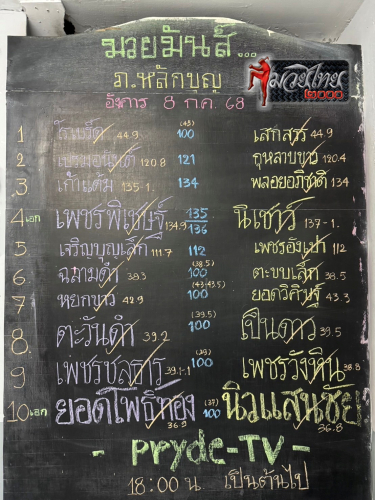 มวยมันส์...
ภ.หลักบุญ
มวยไทย ๒๐๐๐
อังคาร 8 กค. 68
1 โรแร็ค 44.9 (45) 100 เสกสรร 44.9
2 120.8 121 กุหลาบขาว 120.4
3 เก้าแต้ม 135-1. 134 พลอยอภิชาติ 134
4เอก เพชรพิเชษฐ์ 134.9 135 136 นิเชาว์ 137-1.
5. เจริญบุญเล็ก 111.7 112 112
6 ฉลามดำ 38.3 (38.5) 100 ตะขบเล็ก 38.5
7 หยกขาว 42.9 (43:43.5) 100 ยอดวิศิษฐ์ 43.3
8. ตะวันดำ 39.2 (39.5) 100 เป็นดาว 39.5
9 เพชรชลธาร 39.1-.1 100 เพชรวังหิน 38.8
10เอก ยอดโพธิ์ทอง (37) 100 นิวแสนชัย 36.8
- PRYDE-TV -
18:00 น. เป็นต้นไป